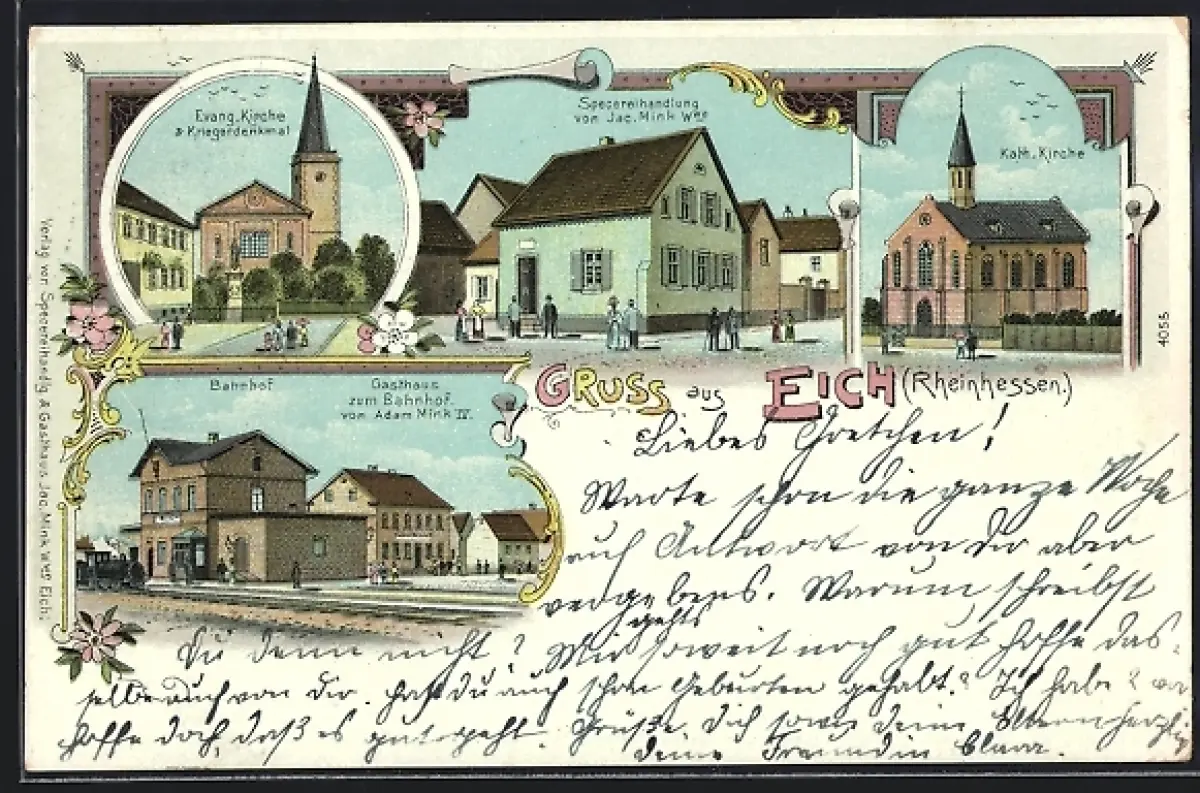 Evang. Kirche
& Kriegerdenkmal
Specereihandlung
von Jac. Mink Wwe
Kath. Kirche
Bahnhof
Gasthaus
zum Bahnhof
von Adam Mink IV.
Gruss aus Eich (Rheinhessen.)
Verlag von Specereihandlg & Gasthaus Jac. Mink Wwe Eich.
4055
Liebes Gretchen!
Warte schon die ganze Woche
auf Antwort von Dir aber
vergebens. Warum schreibst
Du denn nicht? Mir gehts soweit noch gut hoffe das-
selbe auch von Dir. Hast du auch schon Geburten gehabt? Ich habe 2
hoffe doch, daß es gut geht. Grüße Dich sowie deine Eltern herzlich
deine Freundin Clara.